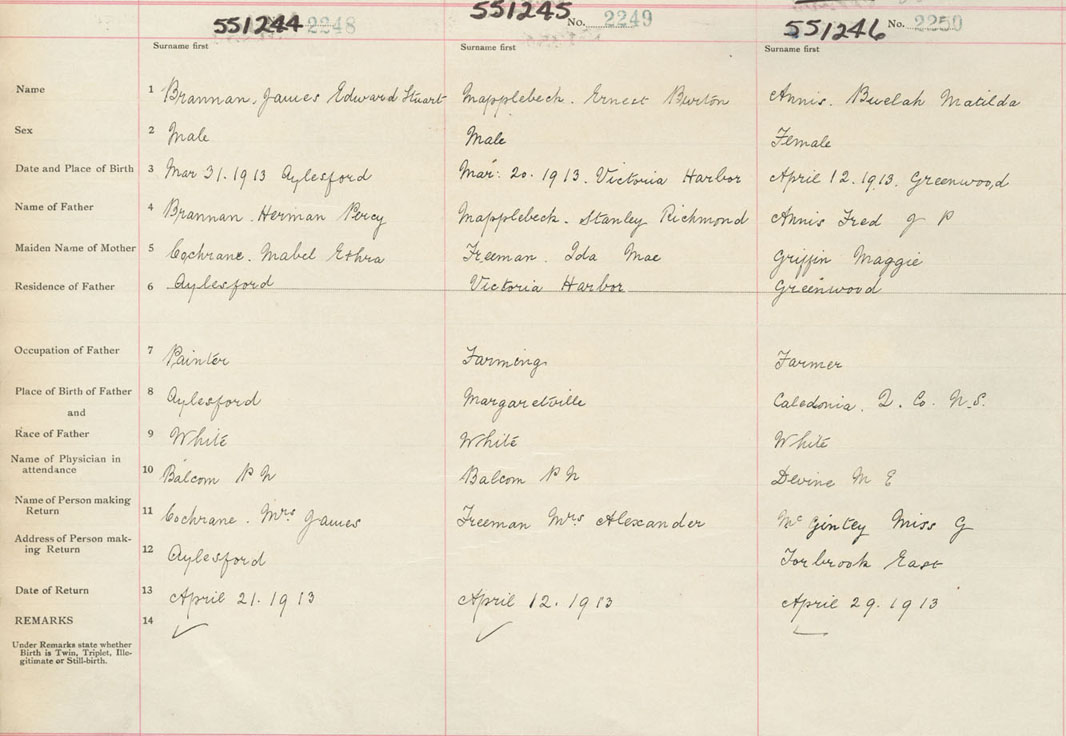 551244 2248 551245 No. 2249 551246 No. 2250
Surname first Surname first Surname first
Name 1 Brannan. James Edward Stuart Mapplebeck. Ernest Burton Annis. Buelah Matilda
Sex 2 Male Male Female
Date and Place of Birth 3 Mar 31. 1913 Aylesford Mar: 20. 1913. Victoria Harbor April 12. 1913. Greenwood
Name of Father 4 Brannan. Herman Percy Mapplebeck. Stanley Richmond Annis Fred J P
Maiden Name of Mother 5 Cochrane. Mabel Ethra Freeman. Ida Mae Griffin Maggie
Residence of Father 6 Aylesford Victoria Harbor Greenwood
Occupation of Father 7 Painter Farming Farmer
Place of Birth of Father 8 Aylesford Margaretville Caledonia. Q. Co. N.S.
and
Race of Father 9 White White White
Name of Physician in
attendance 10 Balcom P N Balcom P N Devine M E
Name of Person making
Return 11 Cochrane. Mrs James Freeman Mrs Alexander McGintey Miss G
Address of Person mak-
ing Return 12 Aylesford Torbrook East
Date of Return 13 April 21. 1913 April 12. 1913 April 29. 1913
REMARKS 14
Under Remarks state whether
Birth is Twin, Triplet, Ille-
gitimate or Still-birth.